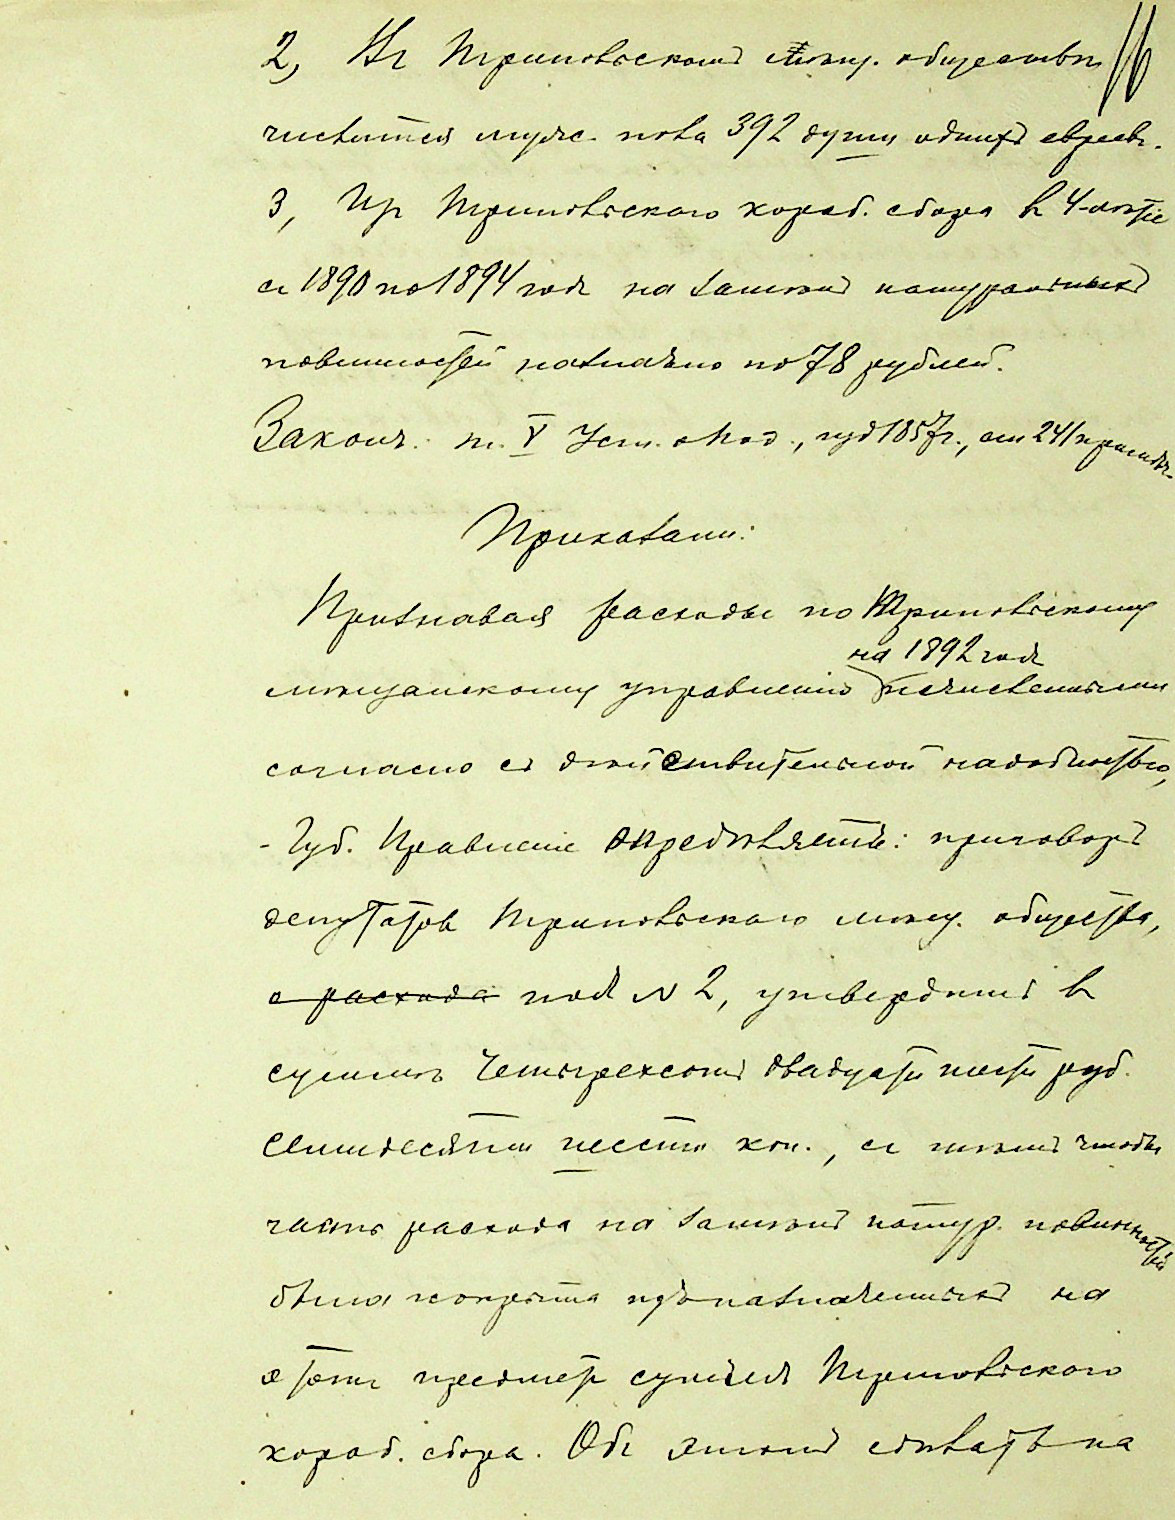 2, Въ Трипольскомъ мѣщ. обществѣ 16
числится муж. пола 392 души однихъ евреевъ.
3, Изъ Трипольскаго короб. сбора въ 4-лѣтіе
съ 1890 по 1894 годъ на замѣнъ натуральныхъ
повинностей назначено по 78 рублей.
Законъ: т. V Уст. о под., изд. 1857 г., ст. 241 и примѣч.
Приказали:
Признавая расходы по Трипольскому
на 1892 годъ
мѣщанскому управленію исчисленными
согласно съ дѣйствительной надобностью,
- Губ. Правленіе опредѣляетъ: приговоръ
депутатовъ Трипольскаго мѣщ. общества,
о расходѣ под № 2, утвердить въ
суммѣ четырехсотъ двадцати шести руб.
семидесяти шести коп., съ тѣмъ чтобы
часть расхода на замѣнъ натур. повинностей
была покрыта изъ назначенныхъ на
этотъ предметъ суммъ Трипольскаго
короб. сбора. Объ этомъ сдѣлать на